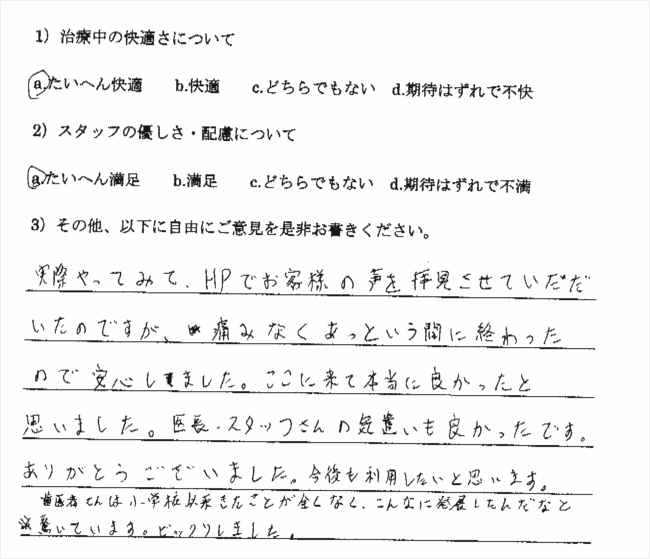 1）治療中の快適さについて
a.たいへん快適　b.快適　c.どちらでもない　d.期待はずれで不快
2）スタッフの優しさ・配慮について
a.たいへん満足　b.満足　c.どちらでもない　d.期待はずれで不満
3）その他、以下に自由にご意見を是非お書きください。
実際やってみて、HPでお客様の声を拝見させていただ
いたのですが、痛みなくあっという間に終わった
ので安心しました。ここに来て本当に良かったと
思いました。医長・スタッフさんの気遣いも良かったです。
ありがとうございました。今後も利用したいと思います。
歯医者さんは小学校以来きたことが全くなく、こんなに発展したんだなと
驚いています。ビックリしました。